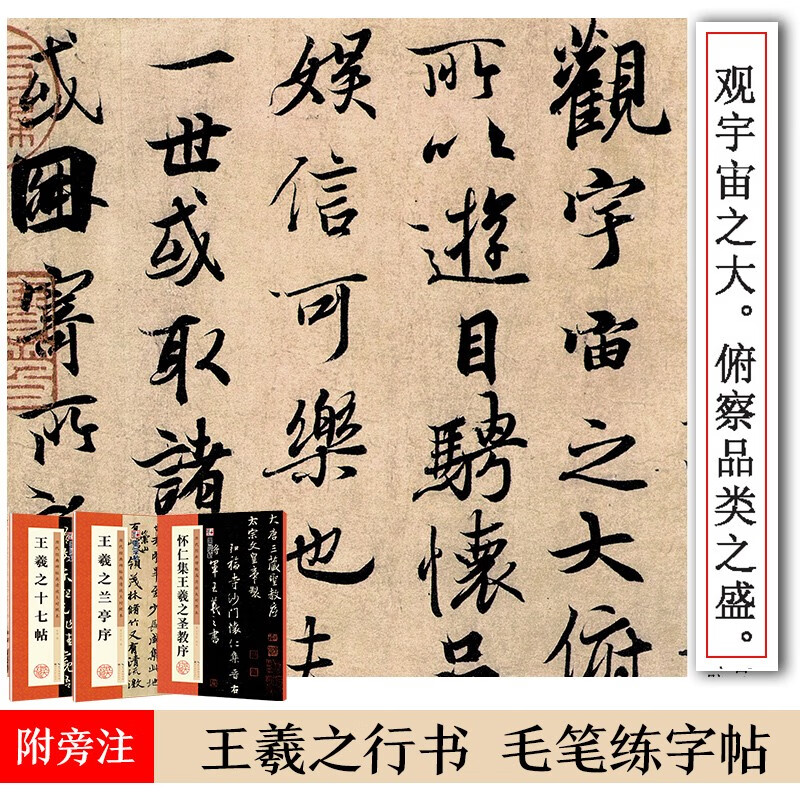 观宇宙之大。俯察品类之盛。
觀宇宙之大俯
所以遊目騁懷
娛信可樂也夫
一世或取諸
或因寄所
王羲之十七帖
王羲之兰亭序
崇山
領茂林脩竹又有清流激
怀仁集王羲之圣教序
大唐三藏聖教序
太宗文皇帝製
弘福寺沙門懷仁集晉右
將軍王羲之書
附旁注
王羲之行书 毛笔练字帖